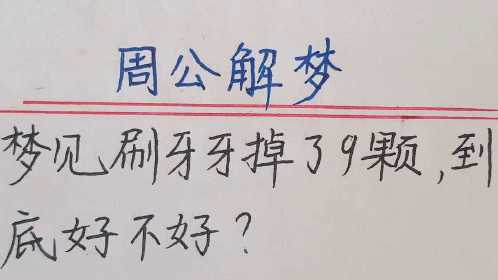 周公解梦
梦见刷牙牙掉了9颗,到
底好不好?